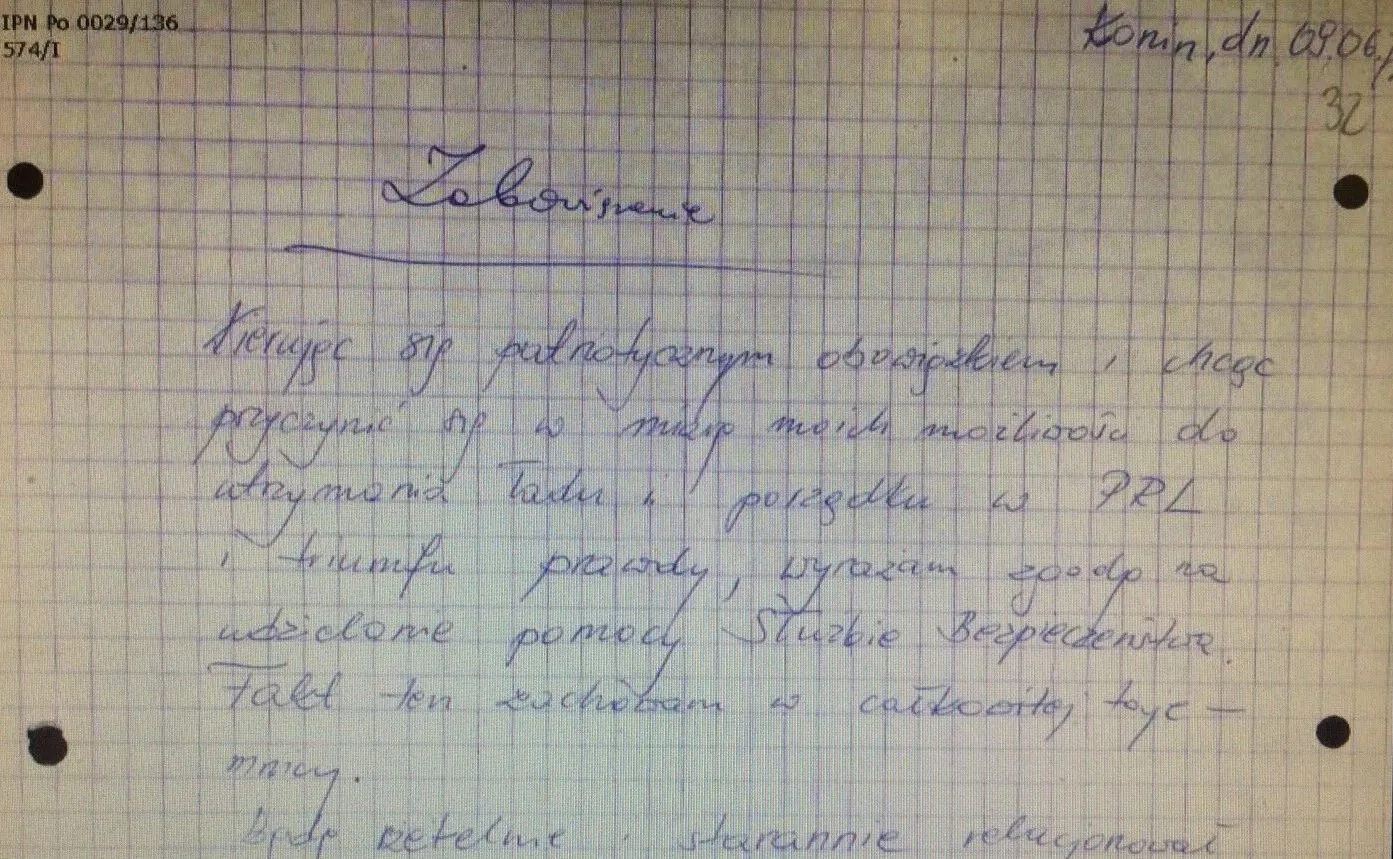 IPN Po 0029/136
574/I
Konin, dn 09.06.
32
Zobowiązanie
Kierując się patriotycznym obowiązkiem i chcąc
przyczynić się w miarę moich możliwości do
utrzymania ładu i porządku w PRL
i triumfu prawdy, wyrażam zgodę na
udzielanie pomocy Służbie Bezpieczeństwa.
Fakt ten zachowam w całkowitej taje-
mnicy.
Będę rzetelnie i starannie relacjonował